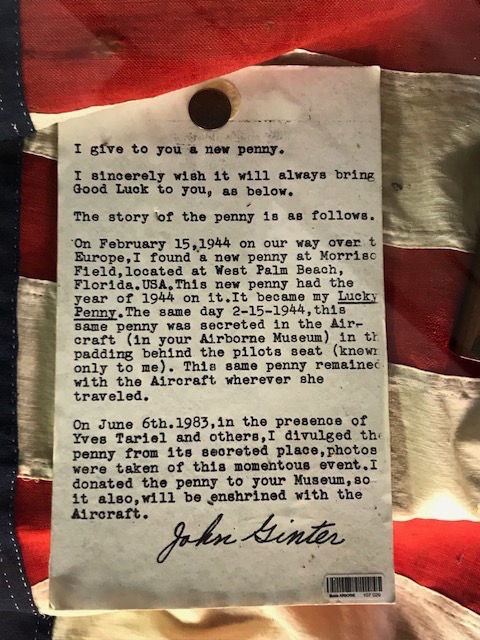 I give to you a new penny.
I sincerely wish it will always bring
Good Luck to you, as below.
The story of the penny is as follows.
On February 15,1944 on our way over t
Europe,I found a new penny at Morrisc
Field,located at West Palm Beach,
Florida.USA.This new penny had the
year of 1944 on it.It became my Lucky
Penny.The same day 2-15-1944,this
same penny was secreted in the Air-
craft (in your Airborne Museum) in th
padding behind the pilots seat (known
only to me). This same penny remained
with the Aircraft wherever she
traveled.
On June 6th.1983,in the presence of
Yves Tariel and others,I divulged the
penny from its secreted place,photos
were taken of this momentous event.I
donated the penny to your Museum,so
it also,will be enshrined with the
Aircraft.
John Ginter